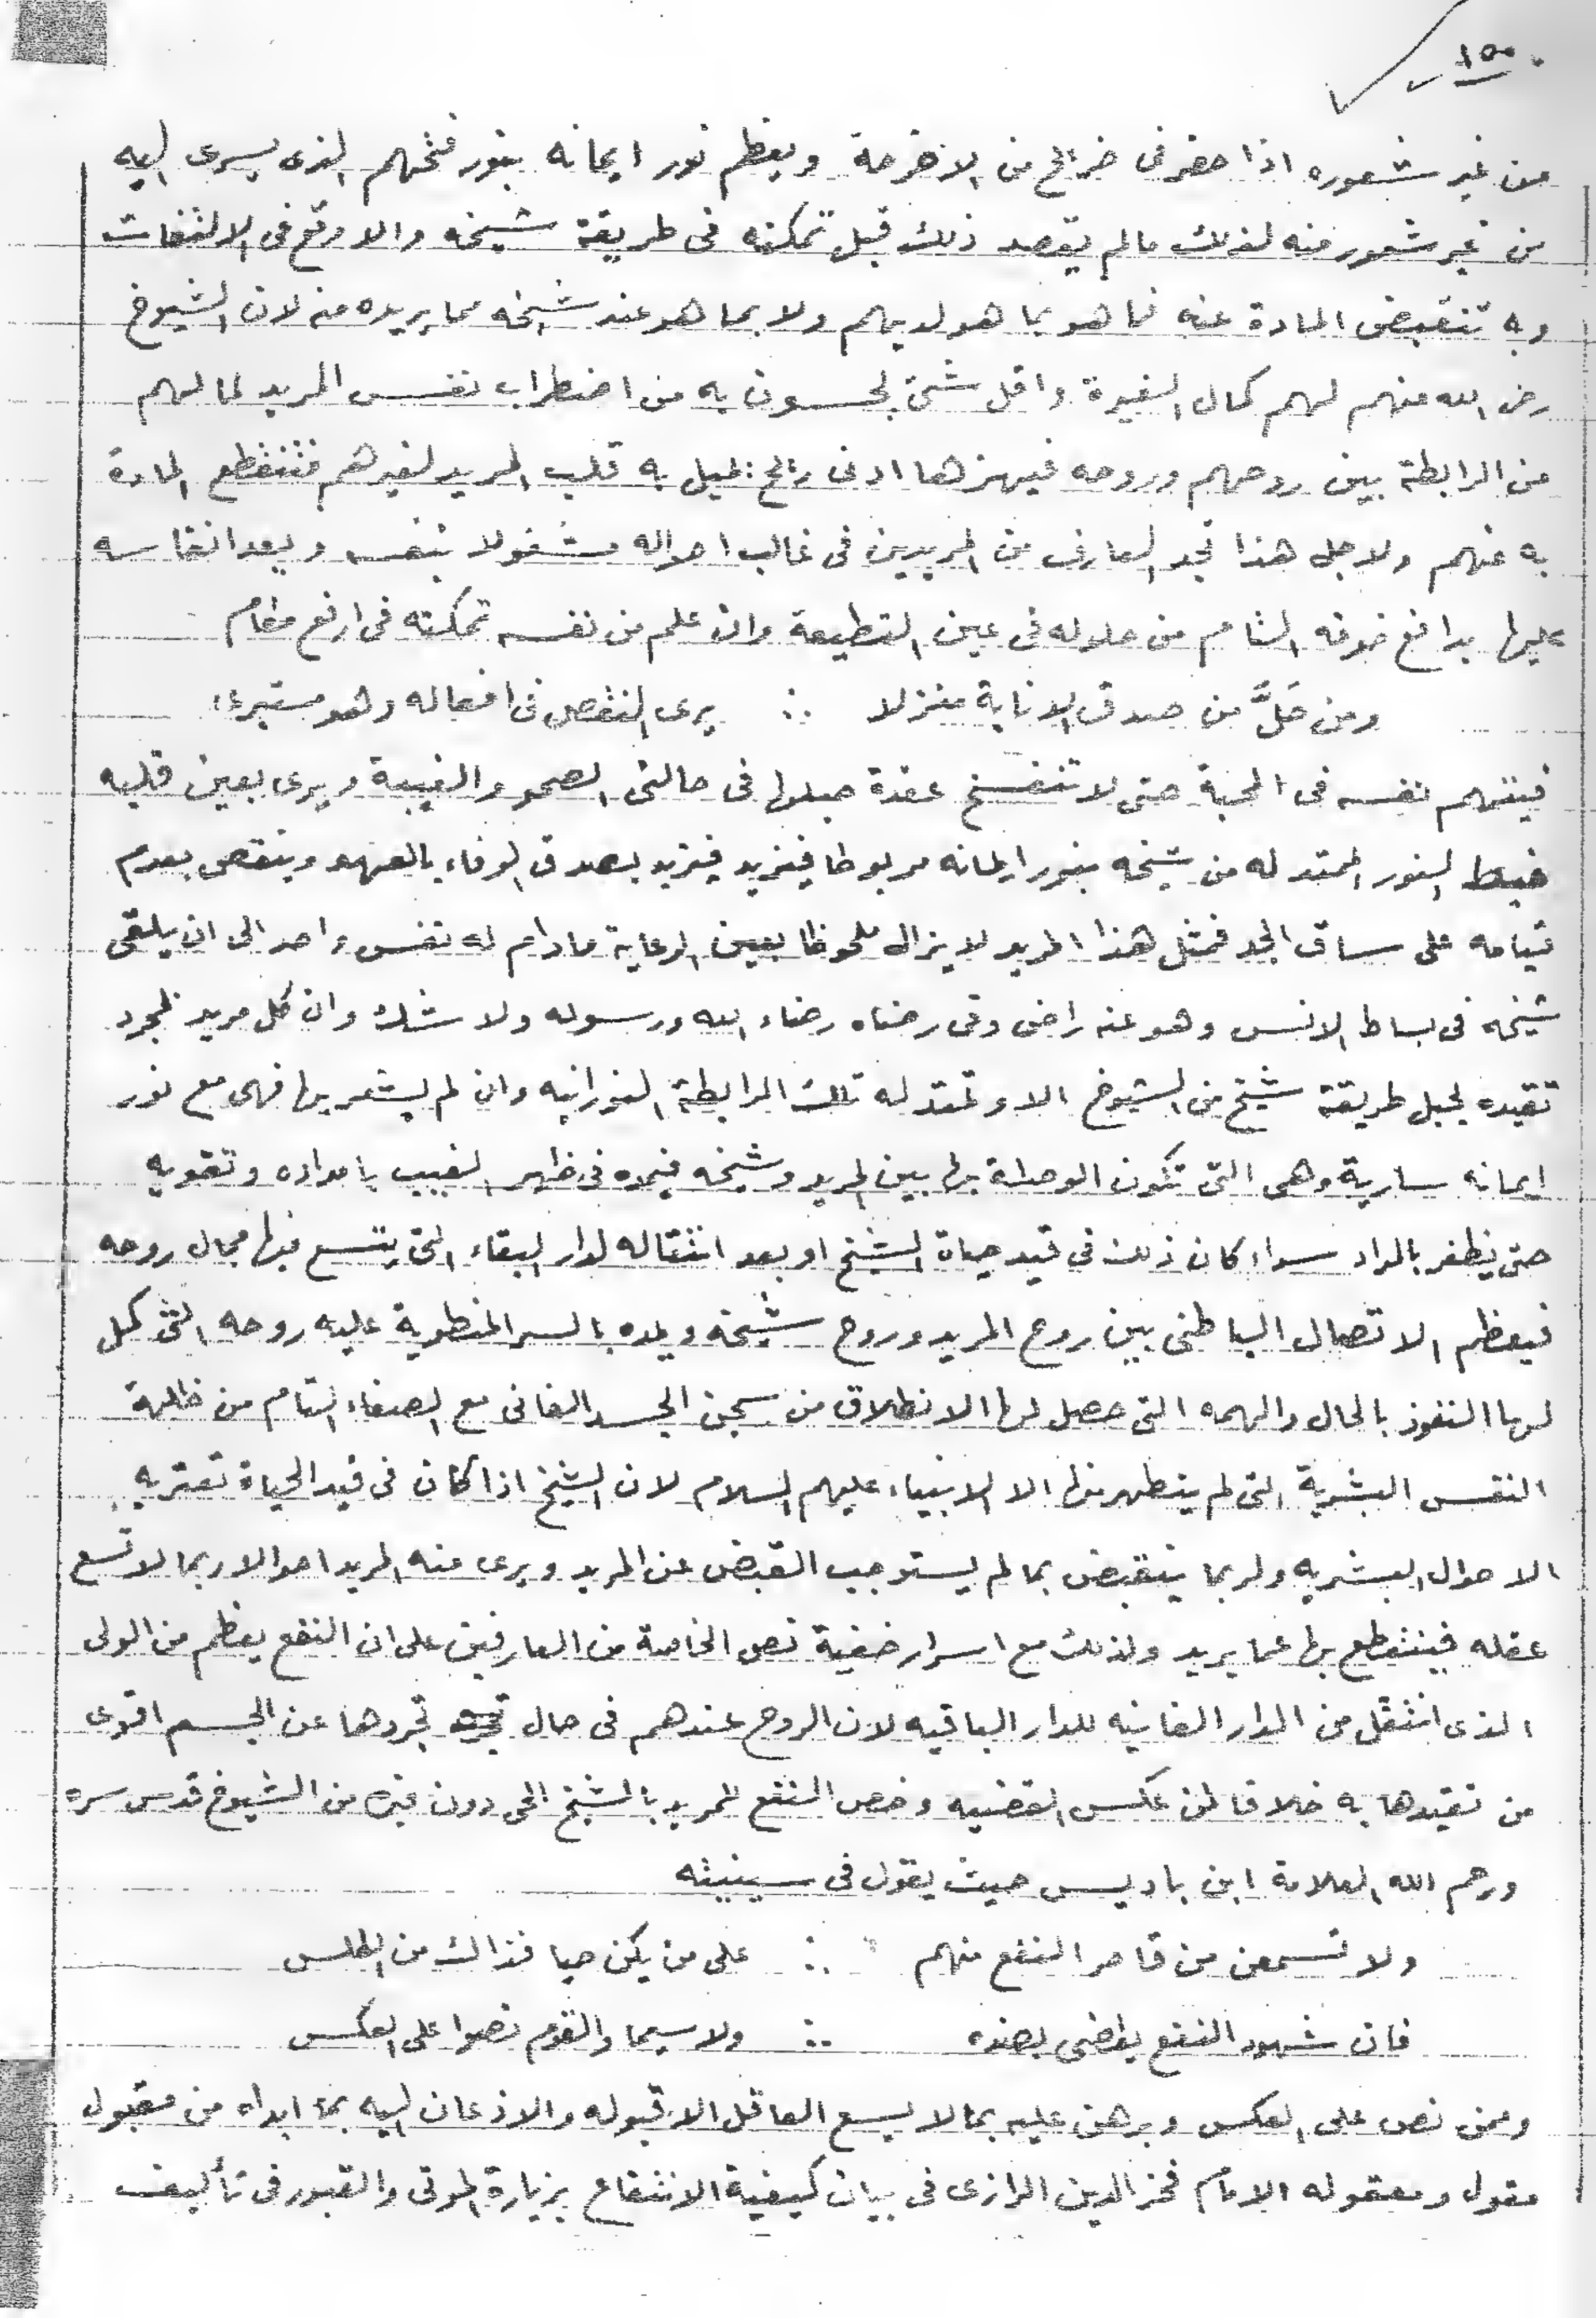 ١٥٠
من غير شعوره اذا حضر فى ضرائح من الاضرحة ويعظم نور ايمانه بنور فتحهم الذى يسرى اليه
من غير شعور منه لذلك مالم يقصد ذلك قبل تمكنه فى طريقة شيخه والا وقع فى الالتفات
وبه تنقبض المادة عنه فما هو بما هو لديهم ولا بما هو عند شيخه مما يريده منه لان الشيوخ
رضى الله عنهم لهم كمال الغيرة واقل شئ يحسون به من اضطراب نفس المريد لما لهم
من الرابطة بين روحهم وروحه فيهزها ادنى ريح يميل به قلب المريد لغيرهم فتنقطع المادة
به عنهم ولاجل هذا تجد العارف من المريدين فى غالب احواله مشغولا بنفسه وبعد انفاسه
عليها يدافع خوفه التام من حلوله فى عين القطيعة وان علم من نفسه تمكنه فى ارفع مقام
ومن حَلَّ من صدق الانابة منزلا ∴ يرى النقص فى افعاله وهو مستبرئ
فيتهم نفسه فى المحبة حتى لا تنفسخ عقدة حبلها فى حالتى الصحو والغيبة ويرى بعين قلبه
خيط النور الممتد له من شيخه بنور ايمانه مربوطا فيزيد فيزيد بصدق الوفاء بالعهد وينقص بعدم
قيامه على ساق الجد فمثل هذا المريد لا يزال ملحوظا بعين الرعاية مادام له نفس واحد الى ان يلقى
شيخه فى بساط الانس وهو عنه راض وفى رضاه رضاء الله ورسوله ولا شك وان كل مريد بمجرد
تقيده بحبل طريقة شيخ من الشيوخ الا وتمتد له تلك الرابطة النورانيه وان لم يشعر بها فهى مع نور
ايمانه سارية وهى التى تكون الوصلة بها بين المريد وشيخه فيمده فى ظهر الغيب بامداده وتقويه
حتى يظفر بالمراد سواء كان ذلك فى قيد حياة الشيخ او بعد انتقاله لدار البقاء التى يتسع فيها مجال روحه
فيعظم الاتصال الباطنى بين روح المريد وروح شيخه ويمده بالسر المنطوية عليه روحه التى كمل
لها النفوذ بالحال والهمه التى حصل لها الانطلاق من سجن الجسد الفانى مع الصفاء التام من ظلمة
النفس البشرية التى لم يتطهر منها الا الانبياء عليهم السلام لان الشيخ اذا كان فى قيد الحياة تعتريه
الاحوال البشريه ولربما ينقبض بما لم يستوجب القبض عن المريد ويرى منه المريد احوالا ربما لا تسع
عقله فينقطع بها عما يريد ولذلك مع اسرار خفية نص الخاصة من العارفين على ان النفع يعظم من الولى
الذى انتقل من الدار الفانيه للدار الباقيه لان الروح عندهم فى حال تجردها عن الجسم اقوى
من تقيدها به خلافا لمن عكس القضيه وخص النفع للمريد بالشيخ الحى دون غيره من الشيوخ قدس سره
ورحم الله العلامة ابن باديس حيث يقول فى سينيته
ولا تسمعن من قاصر النفع منهم ∴ على من يكن حيا فذاك من الطلس
فان شهود النفع يقضى بضده ∴ ولا سيما والقوم نصوا على العكس
وممن نص على العكس وبرهن عليه بما لا يسع العاقل الا قبوله والاذعان اليه بما ابداه من مقبول
مقول ومعقوله الامام فخر الدين الرازى فى بيان كيفية الانتفاع بزيارة الموتى والقبور فى تأليف